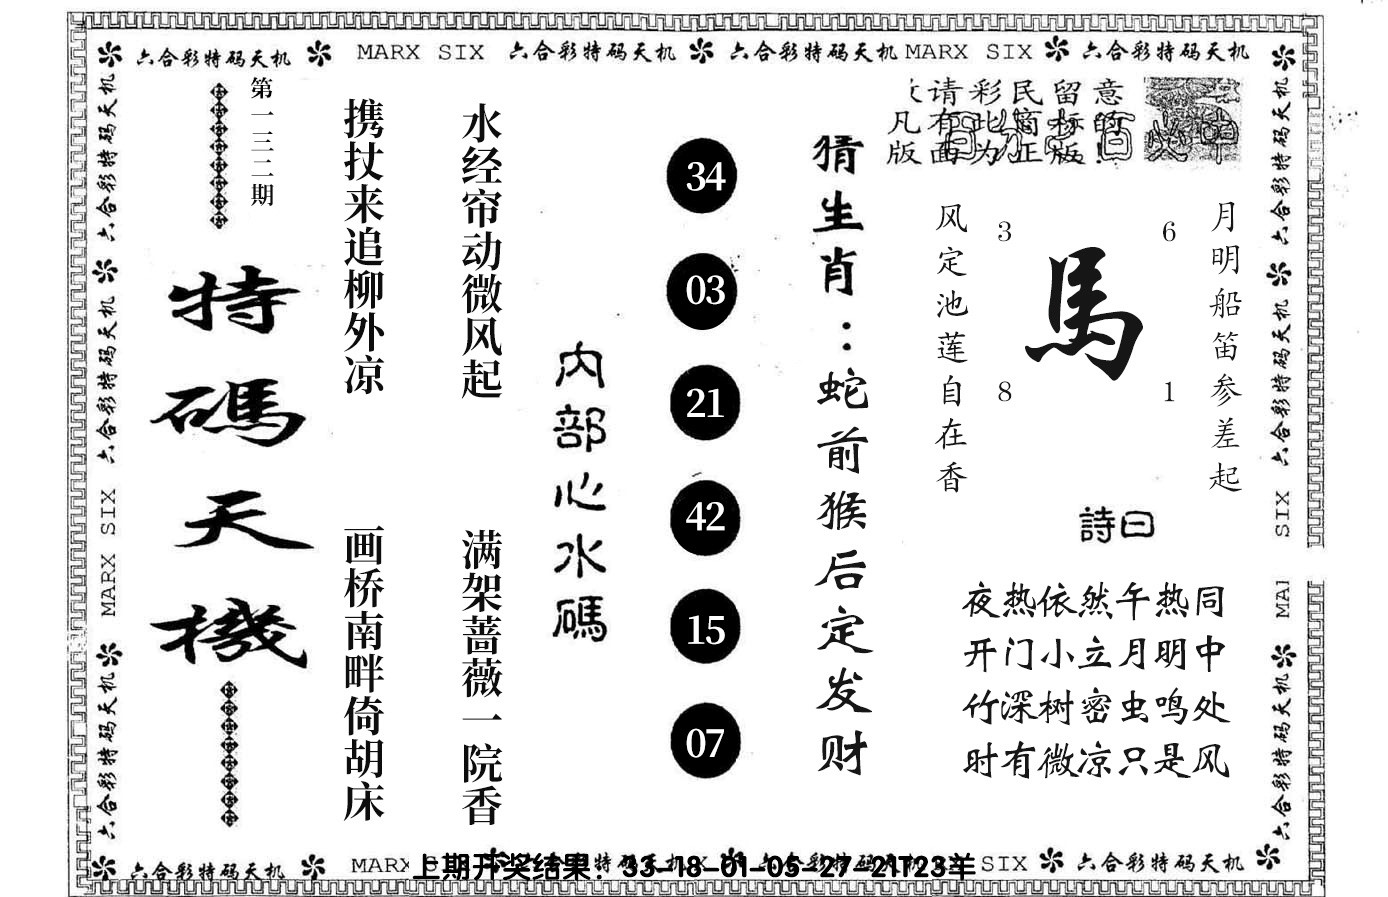 六合彩特码天机 MARX SIX 六合彩特码天机 六合彩特码天机 MARX SIX 六合彩特码天机
六合彩特码天机 六合彩特码天机 MARX SIX 六合彩特码天机
第一三二期
特碼天機
携扙来追柳外凉
画桥南畔倚胡床
水经帘动微风起
满架蔷薇一院香
内部心水碼
34
03
21
42
15
07
猜生肖：蛇前猴后定发财
请彩民留意
凡有此简标的
版面为正版!
月明船笛参差起
风定池莲自在香
3 6
馬
8 1
詩曰
夜热依然午热同
开门小立月明中
竹深树密虫鸣处
时有微凉只是风
六合彩特码天机 六合彩特码天机 SIX MAI 六合彩特码天机
六合彩特码天机 MARX SIX 六合彩特码天机
上期开奖结果：33-18-01-05-27-21T23羊